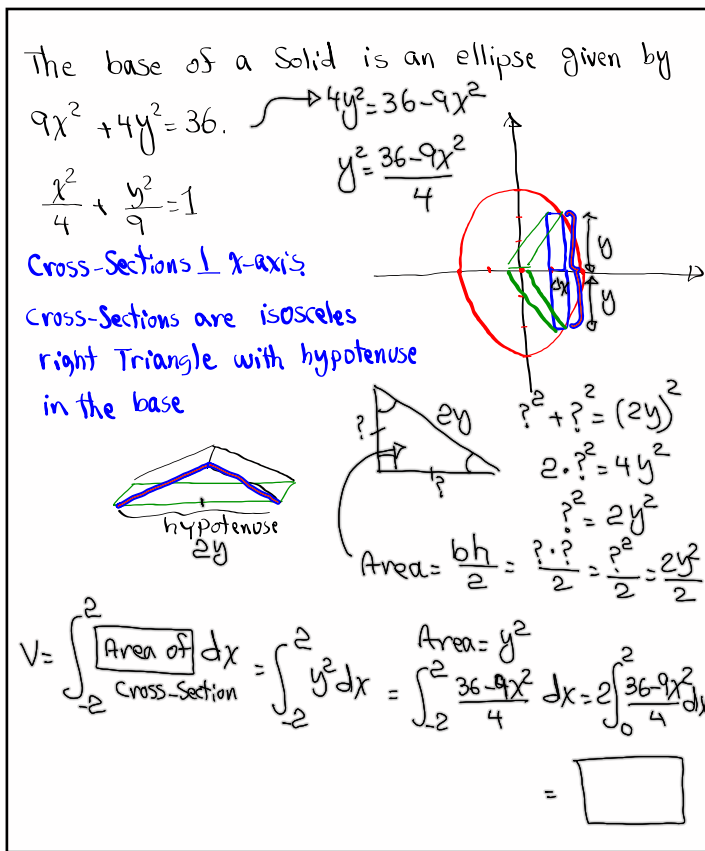 The base of a Solid is an ellipse given by
9x² + 4y² = 36. → 4y² = 36-9x²
y² = (36-9x²)/4
x²/4 + y²/9 = 1
Cross-Sections ⊥ x-axis.
Cross-Sections are isosceles
right Triangle with hypotenuse
in the base
y
Δx
y
?
2y
?
?² + ?² = (2y)²
2·?² = 4y²
?² = 2y²
hypotenuse
2y
Area = bh/2 = ?·?/2 = ?²/2 = 2y²/2
Area = y²
V = ∫₋₂² Area of Cross-Section dx = ∫₋₂² y² dx = ∫₋₂² (36-9x²)/4 dx = 2∫₀² (36-9x²)/4 dx
=